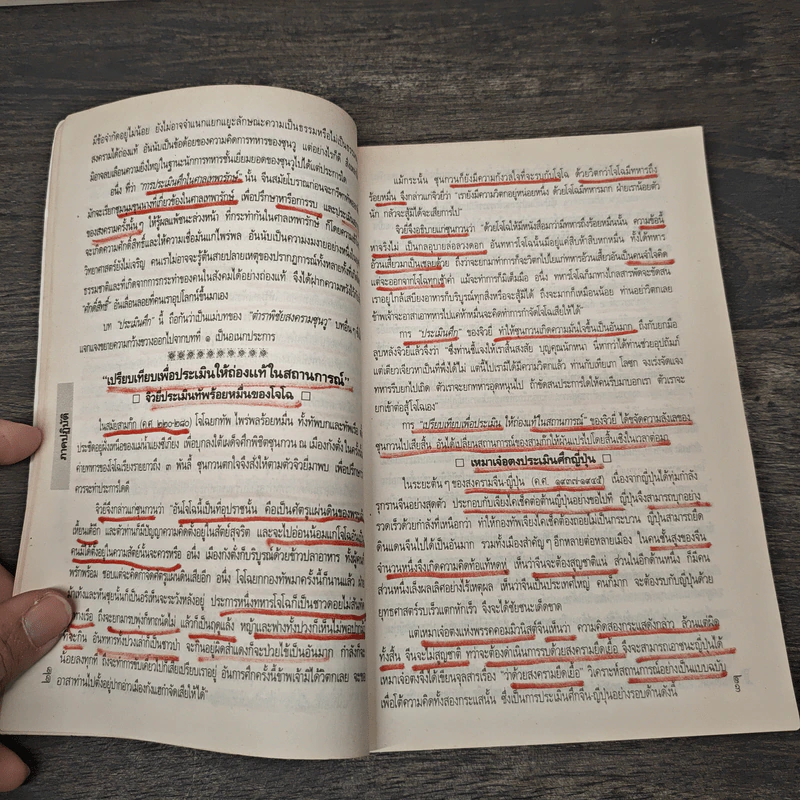 มีข้อจำกัดอยู่ไม่น้อย ยังไม่อาจจำแนกแยกแยะลักษณะความเป็นธรรมหรือไม่เป็น
สงครามได้ถ่องแท้ อันนับเป็นข้อด้อยของความคิดการทหารของซุนวู แต่อย่างไรก็ดี
มิอาจลบเลือนความยิ่งใหญ่ในฐานะนักการทหารชั้นเยี่ยมยอดของซุนวูไปได้แต่ประการใด
อนึ่ง ที่ว่า "การประเมินศึกในศาลเทพารักษ์" นั้น จีนสมัยโบราณก่อนจะ
มักจะเรียกชุมนุมขุนนางที่เกี่ยวข้องในศาลเทพารักษ์ เพื่อปรึกษาหารือการรบ และประเมิน
ของสงครามครั้งนั้นๆ ให้รู้ผลแพ้ชนะล่วงหน้า ที่กระทำกันในศาลเทพารักษ์ ก็โดย
จะเกิดความศักดิ์สิทธิ์และให้ความเชื่อมั่นแก่ไพร่พล อันนับเป็นความงมงายอย่างหนึ่ง
วิทยาศาสตร์ยังไม่เจริญ คนเราไม่อาจจะรู้ต้นสายปลายเหตุของปรากฏการณ์ทั้งหลาย
ธรรมชาติและที่เกิดจากการกระทำของคนในสังคมได้อย่างถ่องแท้ จึงได้ฝาก
"ศักดิ์สิทธิ์" อันเลื่อนลอยที่คนเราอุปโลกน์ขึ้นมาเอง
บท "ประเมินศึก" นี้ ถือกันว่าเป็นแม่บทของ "ตำราพิชัยสงครามซุนวู" บทอื่นๆ
แจกแจงขยายความกว้างขวางออกไปจากบทที่ ๑ เป็นอเนกประการ
"เปรียบเทียบเพื่อประเมินให้ถ่องแท้ในสถานการณ์"
จิวยี่ประเมินทัพร้อยหมื่นของโจโฉ
ในสมัยสามก๊ก (ค.ศ. ๒๒๐-๒๘๐) โจโฉยกทัพ ไพร่พลร้อยหมื่น ทั้งทัพบกและทัพเรือ
ประชิดอยู่ฝั่งเหนือของแม่น้ำแยงซีเกียง เพื่อบุกลงใต้เผด็จศึกพิชิตซุนกวน ณ เมืองกังตั๋ง
ค่ายทหารของโจโฉเรียงรายยาวถึง ๓ พันลี้ ซุนกวนตกใจจึงสั่งให้ตามตัวจิวยี่มาพบ เพื่อปรึกษา
ควรจะทำประการใดดี
จิวยี่จึงกล่าวแก่ซุนกวนว่า "อันโจโฉนั้นเป็นที่อุปราชนั้น คือเป็นศัตรูแผ่นดินของ
เหี้ยนเต้อีก และตัวท่านก็มีปัญญาความคิดตั้งอยู่ในสัตย์สุจริต และจะไปอ่อนน้อมแก่โจโฉ
คนมิได้ตั้งอยู่ในความสัตย์นั้นจะควรหรือ อนึ่ง เมืองกังตั๋งก็บริบูรณ์ด้วยข้าวปลาอาหาร
พรักพร้อม ชอบแต่จะคิดกำจัดศัตรูแผ่นดินเสียอีก อนึ่ง โจโฉยกกองทัพมาครั้งนี้ก็นานแล้ว
ม้าเท้งและหันซุยนั้นก็เป็นอริเห็นจะระวังหลังอยู่ ประการหนึ่งทหารโจโฉก็เป็นชาวดอย
ทางเรือ ถึงจะยกมารบพุ่งก็หาถนัดไม่ แล้วก็เป็นฤดูแล้ง หญ้าและฟางทั้งปวงก็เห็นไม่พอ
ที่จะกิน อันทหารทั้งปวงเล่าก็เป็นชาวป่า จะกินอยู่ผิดสำแดงก็จะป่วยไข้เป็นอันมาก กำลัง
น้อยลงทุกที ถึงจะทำการขับเคี่ยวไปก็เสียเปรียบเราอยู่ อันการศึกครั้งนี้ข้าพเจ้ามิได้วิตกเลย
อาสาท่านไปตั้งอยู่ปากอ่าวเมืองกังแฮกำจัดเสียให้ได้"
ภาคปฏิบัติ
๒๒
แม้กระนั้น ซุนกวนก็ยังมีความกังวลใจที่จะรบกับโจโฉ ด้วยวิตกว่าโจโฉมีทหารถึง
ร้อยหมื่น จึงกล่าวแก่จิวยี่ว่า "เรายังมีความวิตกอยู่หน่อยหนึ่ง ด้วยโจโฉมีทหารมาก ฝ่ายเราน้อยตัว
นัก กลัวจะสู้มิได้จะเสียการไป"
จิวยี่จึงอธิบายแก่ซุนกวนว่า "ด้วยโจโฉให้มีหนังสือมาว่ามีทหารถึงร้อยหมื่นนั้น ความข้อนี้
หาจริงไม่ เป็นกลอุบายล่อลวงดอก อันทหารโจโฉนั้นมีอยู่แค่สิบห้าสิบหกหมื่น ทั้งได้ทหาร
อ้วนเสี้ยวมาเป็นเชลยด้วย ถึงว่าจะยกมาทำการก็จะวิตกไปใยแก่ทหารอ้วนเสี้ยวอันเป็นคนจำใจคิด
แต่จะออกจากโจโฉทุกเช้าค่ำ แม้จะทำการก็มิเต็มมือ อนึ่ง ทหารโจโฉก็มาทางไกลสารพัดจะขัดสน
เราอยู่ใกล้เสบียงอาหารก็บริบูรณ์ทุกสิ่งหรือจะสู้มิได้ ถึงจะมากก็เหมือนน้อย ท่านอย่าวิตกเลย
ข้าพเจ้าจะอาสาเอาทหารไปแค่ห้าหมื่นจะคิดทำการกำจัดโจโฉเสียให้ได้"
การ "ประเมินศึก" ของจิวยี่ ทำให้ซุนกวนเกิดความมั่นใจขึ้นเป็นอันมาก ถึงกับยกมือ
ลูบหลังจิวยี่แล้วจึงว่า "ซึ่งท่านชี้แจงให้เราสิ้นสงสัย บุญคุณนักหนา นี่หากว่าได้ท่านช่วยอุปถัมภ์
แต่เตียวเจียวหาเป็นที่พึ่งได้ไม่ แต่นี้ไปเรามิได้มีความวิตกแล้ว ท่านกับเทียเภา โลซก จงเร่งจัดแจง
ทหารรีบยกไปเถิด ตัวเราจะยกทหารอุดหนุนไป ถ้าขัดสนประการใดให้คนรีบมาบอกเรา ตัวเราจะ
ยกเข้าต่อสู้โจโฉเอง"
การ "เปรียบเทียบเพื่อประเมิน ให้ถ่องแท้ในสถานการณ์" ของจิวยี่ ได้ขจัดความลังเลของ
ซุนกวนไปเสียสิ้น อันได้เปลี่ยนสถานการณ์ของสามก๊กให้ผันแปรไปโดยสิ้นเชิงในเวลาต่อมา
เหมาเจ๋อตงประเมินศึกญี่ปุ่น
ในระยะต้นๆ ของสงครามจีน-ญี่ปุ่น (ค.ศ. ๑๙๓๗-๑๙๔๕) เนื่องจากญี่ปุ่นได้ทุ่มกำลัง
รุกรานจีนอย่างสุดตัว ประกอบกับเจียงไคเช็คต่อต้านญี่ปุ่นอย่างขอไปที ญี่ปุ่นจึงสามารถบุกอย่าง
รวดเร็วด้วยกำลังที่เหนือกว่า ทำให้กองทัพเจียงไคเช็คต้องถอยไม่เป็นกระบวน ญี่ปุ่นสามารถยึด
ดินแดนจีนไปได้เป็นอันมาก รวมทั้งเมืองสำคัญๆ อีกหลายต่อหลายเมือง ในคนชั้นสูงของจีน
จำนวนหนึ่งจึงเกิดความคิดท้อแท้หดหู่ เห็นว่าจีนจะต้องสูญชาติแน่ ส่วนในอีกด้านหนึ่ง ก็มีคน
ส่วนหนึ่งเล็งผลเลิศอย่างไร้เหตุผล เห็นว่าจีนเป็นประเทศใหญ่ คนก็มาก จะต้องรบกับญี่ปุ่นด้วย
ยุทธศาสตร์รบเร็วแตกหักเร็ว จึงจะได้ชัยชนะเด็ดขาด
แต่เหมาเจ๋อตงแห่งพรรคคอมมิวนิสต์จีนเห็นว่า ความคิดสองกระแสดังกล่าว ล้วนแต่ผิด
ทั้งสิ้น จีนจะไม่สูญชาติ ทว่าจะต้องดำเนินการรบด้วยสงครามยืดเยื้อ จึงจะสามารถเอาชนะญี่ปุ่นได้
เหมาเจ๋อตงจึงได้เขียนจุลสารเรื่อง "ว่าด้วยสงครามยืดเยื้อ" วิเคราะห์สถานการณ์อย่างเป็นแบบฉบับ
เพื่อโต้ความคิดทั้งสองกระแสนั้น ซึ่งเป็นการประเมินศึกจีน-ญี่ปุ่นอย่างรอบด้านดังนี้
๒๓